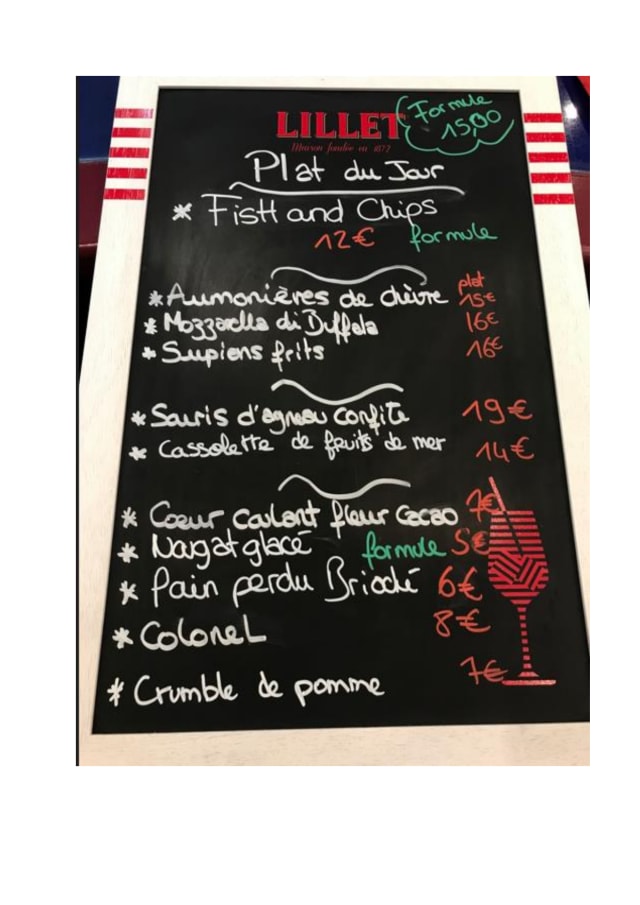 Formule
1500
LILLET
Maison fondée en 1872
Plat du Jour
* FisH and Chips
12€ formule
plat
* Aumonières de chèvre 15€
* Mozzarella di Buffala 16€
* Supiens frits 16€
* Sauris d'agneau confite 19€
* Cassolette de fruits de mer 14€
* Cœur coulant fleur Cacao 7€
* Nougat glacé formule 5€
* Pain perdu Brioché 6€
* Colonel 8€
* Crumble de pomme 7€